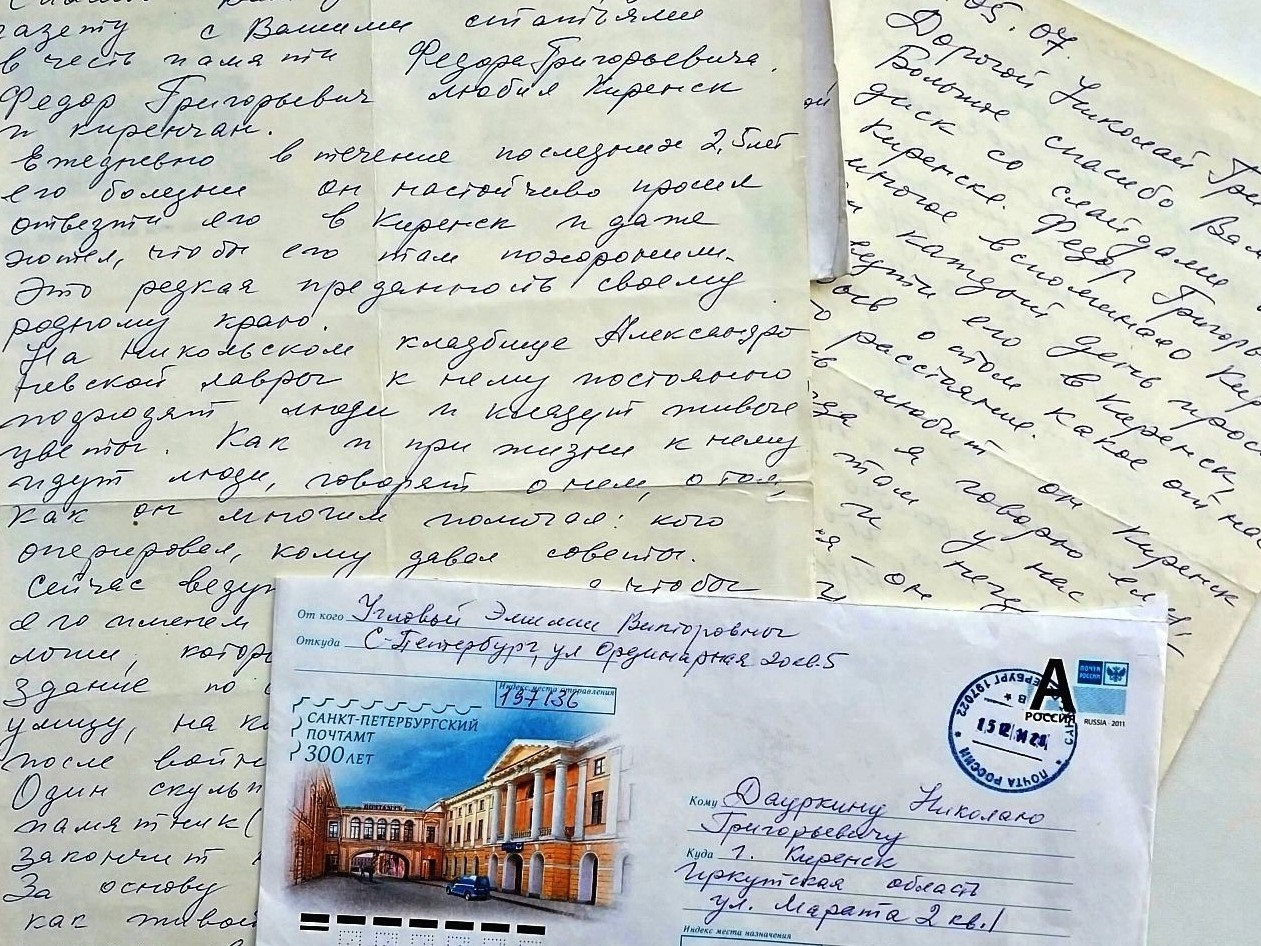 газету с Вашими статьями
в честь памяти Федора Григорьевича.
Федор Григорьевич любил Киренск
и киренчан.
Ежедневно в течение последних 2,5 лет
его болезни он настойчиво просил
отвезти его в Киренск и даже
хотел, чтобы его там похоронили.
Это редкая преданность своему
родному краю.
На Никольском кладбище Александро
Невской лавры к нему постоянно
подходят люди и кладут живые
цветы. Как и при жизни к нему
идут люди, говорят о нем, о том,
как он многим помогал: кого
оперировал, кому давал советы.
Сейчас ведут чтобы
его именем
здание по
улицу, на к
после войн
Один скульп
памятник (
закончит
За основу
как живой
05.07.
Дорогой Николай Гри
Большое спасибо Вам
диск со слайдами
Киренске. Федор Григорь
многое вспоминало Кир
и каждый день прос
его в Киренск,
о этом какое от нас
расстояние.
любит он Киренск
я говорю ему
там у нас
и
я - он
От кого Угловой Эмилии Викторовны
Откуда С-Петербург, ул Ординарная 20 кв.5
Индекс места отправления
197136
САНКТ-ПЕТЕРБУРГСКИЙ
ПОЧТАМТ
300 ЛЕТ
ПОЧТАМТ
А
РОССИЯ
ПОЧТА РОССИИ
RUSSIA · 2011
САНКТ-ПЕТЕРБУРГ 197022
ПОЧТА РОССИИ
Кому Дауркину Николаю
Григорьевичу
Куда г. Киренск
Иркутская область
ул. Марата 2 кв.1
Индекс места назначения